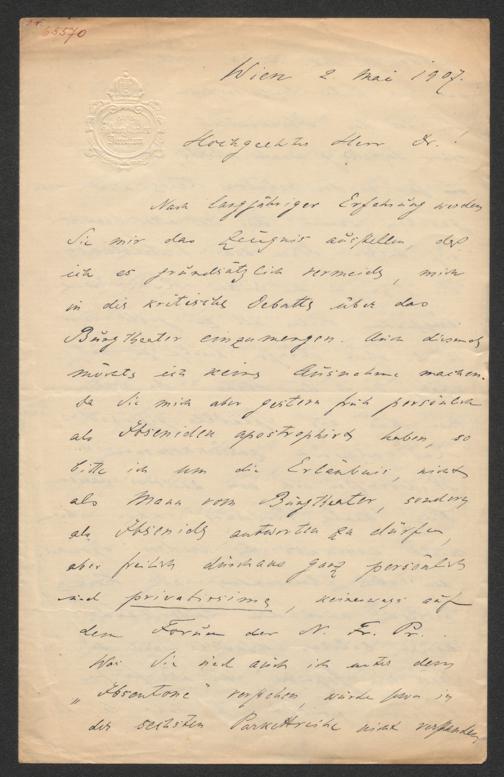 65570
Wien 2. Mai 1907.
Hochgeehrter Herr Dr.!
Nach langjähriger Erfahrung werden
Sie mir das Zeugnis ausstellen, daß
ich es grundsätzlich vermeide, mich
in die kritische Debatte über das
Burgtheater einzumengen. Auch diesmal
möchte ich keine Ausnahme machen.
Da Sie mich aber gestern früh persönlich
als Ibseniden apostrophirt haben, so
bitte ich um die Erlaubnis, nicht
als Mann vom Burgtheater, sondern
als Ibsenide antworten zu dürfen,
aber freilich durchaus ganz persönlich
und privatissime, keineswegs auf
dem Forum der N. Fr. Pr.
Was Sie und auch ich unter dem
„Ibsentone“ verstehen, würde schon in
der sechsten Parkettreihe nicht verstanden